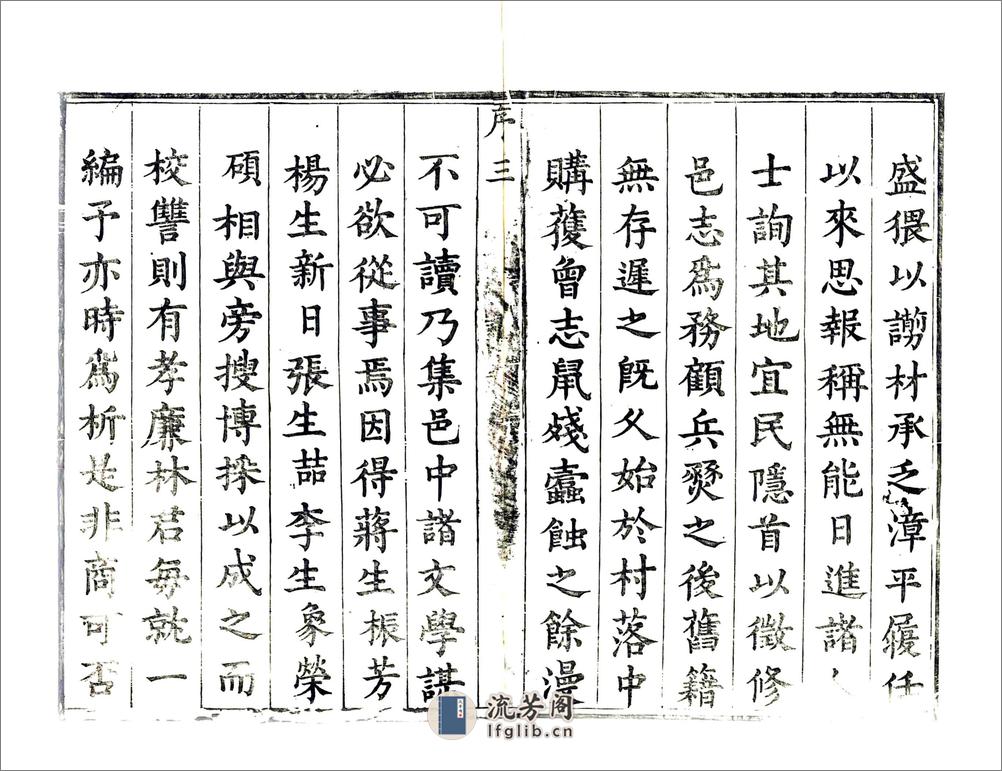 盛猥以謭材承乏漳平履任
以來思報稱無能日進諸
士詢其地宜民隱首以徵修
邑志爲務顧兵燹之後舊籍
無存遲之旣久始於村落中
購獲曾志鼠殘蠹蝕之餘漫
序 三
不可讀乃集邑中諸文學謀
必欲從事焉因得蔣生振芳
楊生新日張生喆李生象榮
碩相與旁搜博採以成之而
校讐則有孝廉林君每就一
編予亦時爲析是非商可否
流芳阁
lfglib.cn